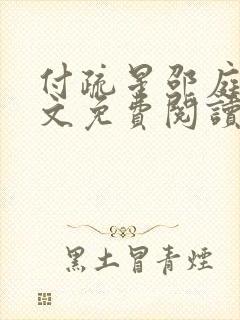 付疏星邵庭
文免費閱讀
黑土冒青煙